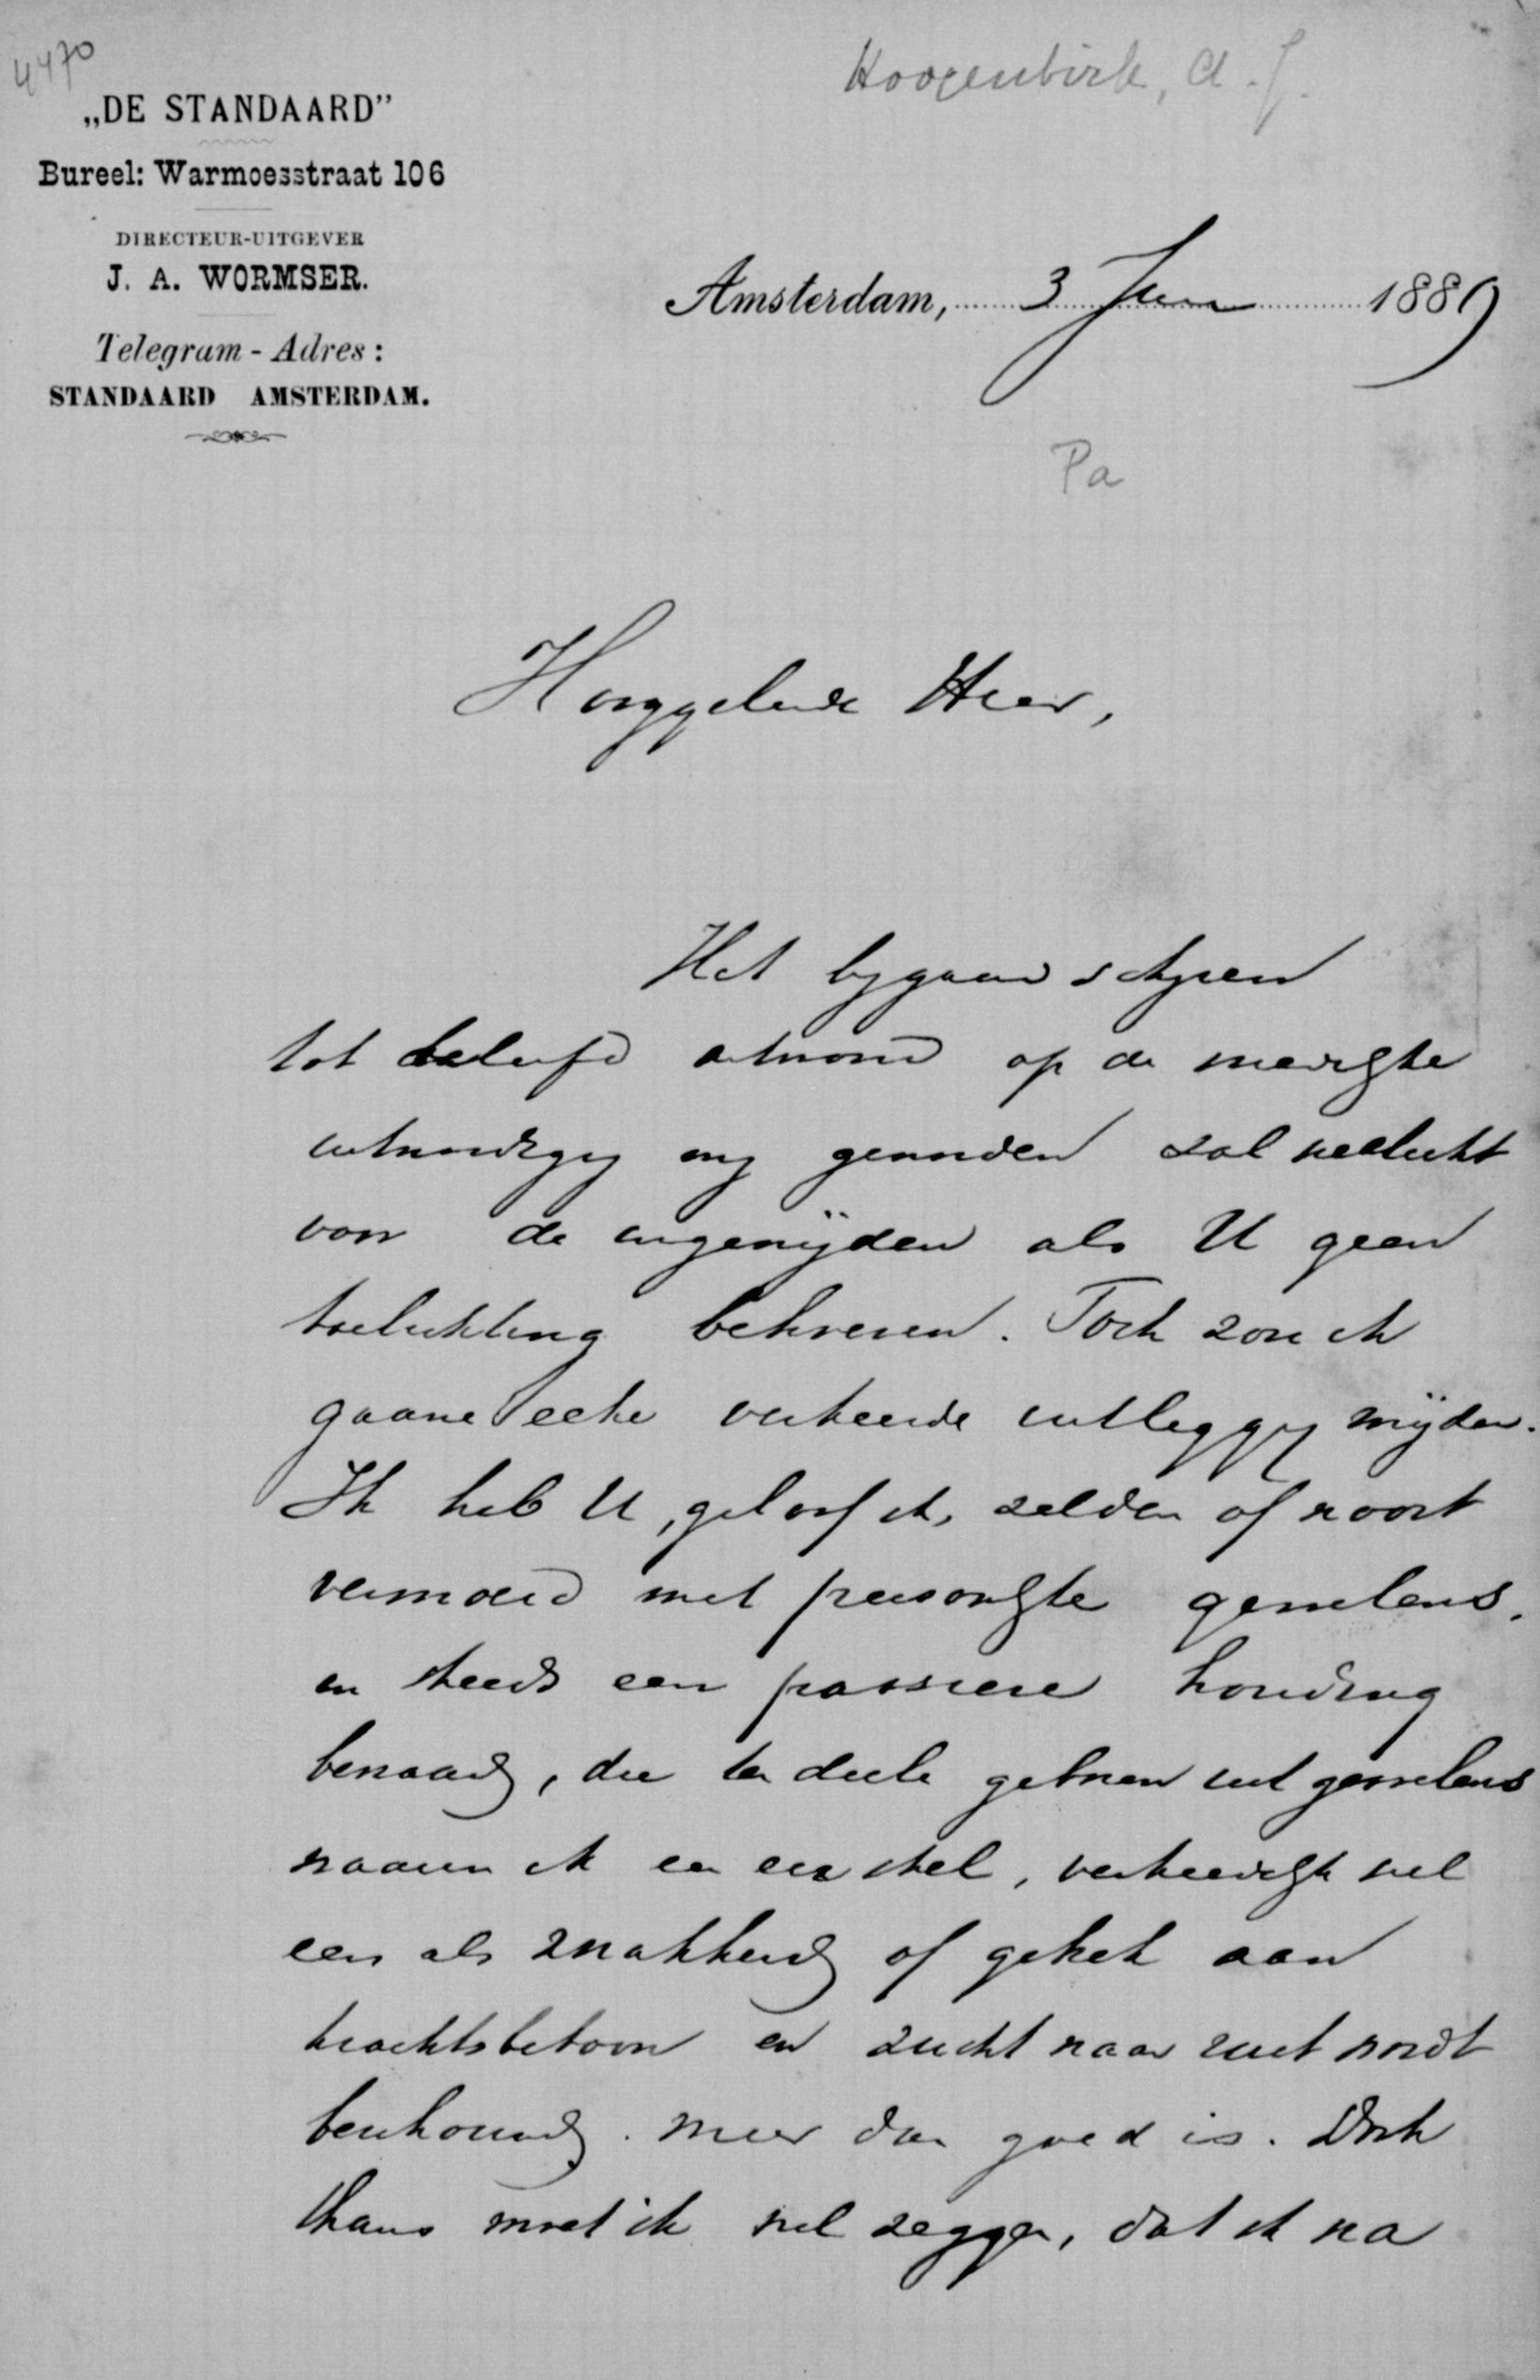 4470
Hoogenbirk, A. J.
„DE STANDAARD”
Bureel: Warmoesstraat 106
DIRECTEUR-UITGEVER
J. A. WORMSER.
Telegram - Adres:
STANDAARD AMSTERDAM.
Amsterdam, 3 Juni 1889
Pa
Hooggeleerde Heer,
Het bijgaand schrijven
tot beleefd antwoord op de
uitnoodiging mij geworden zal wellicht
voor de ingewijden als U geen
toelichting behoeven. Toch zou ik
gaarne elke verkeerde uitlegging mijden.
Ik heb U, geloof ik, zelden of nooit
vermoeid met persoonlijke gevoelens,
en steeds een passieve houding
bewaard, die ten deele geboren uit gevoelens
waarin ik een eer stel, verkeerdelijk wel
eens als zwakheid of gebrek aan
krachtsbetoon en zucht naar rust wordt
beschouwd. meer dan goed is. Doch
thans moet ik wel zeggen, dat ik na